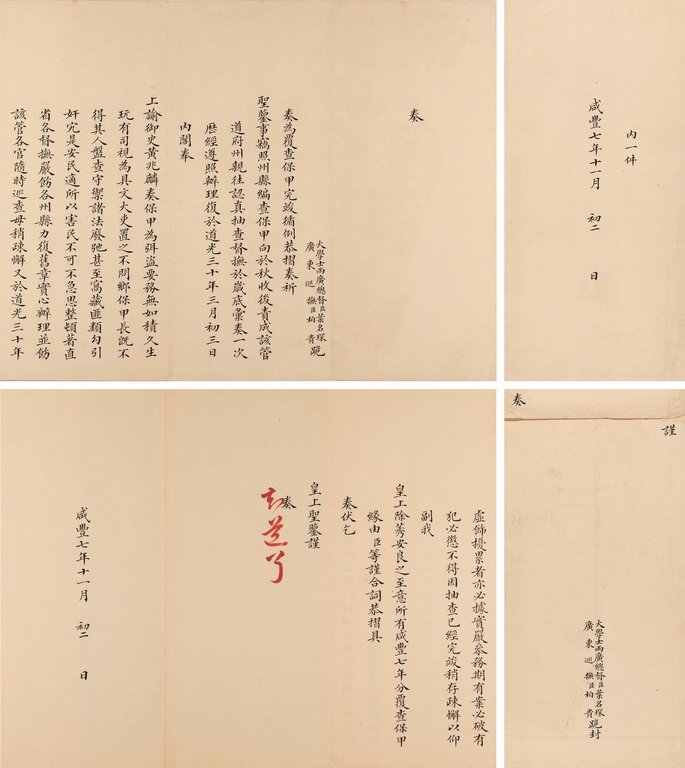 奏
大學士兩廣總督臣葉名琛
廣東巡撫臣柏貴跪
奏為覆查保甲完竣循例恭摺奏祈
聖鑒事竊照州縣編查保甲向於秋收後責成該管
道府州親往認真抽查督撫於歲底彙奏一次
歷經遵照辦理復於道光三十年三月初三日
內閣奉
上諭御史黃兆麟奏保甲為弭盜要務無如積久生
玩有司視為具文大吏置之不問鄉保甲長既不
得其人盤查守禦諸法廢弛甚至窩藏匪類勾引
奸宄是安民適所以害民不可不急思整頓著直
省各督撫嚴飭各州縣力復舊章實心辦理並飭
該管各官隨時巡查毋稍疎懈又於道光三十年
內一件
咸豐七年十一月 初二 日
虛飾擾累者亦必據實嚴叅務期有案必破有
犯必懲不得因抽查已經完竣稍存疎懈以仰
副我
皇上除莠安良之至意所有咸豐七年分覆查保甲
緣由臣等謹合詞恭摺具
奏伏乞
皇上聖鑒謹
奏
知道了
咸豐七年十一月 初二 日
謹
奏
大學士兩廣總督臣葉名琛
廣東巡撫臣柏貴跪封